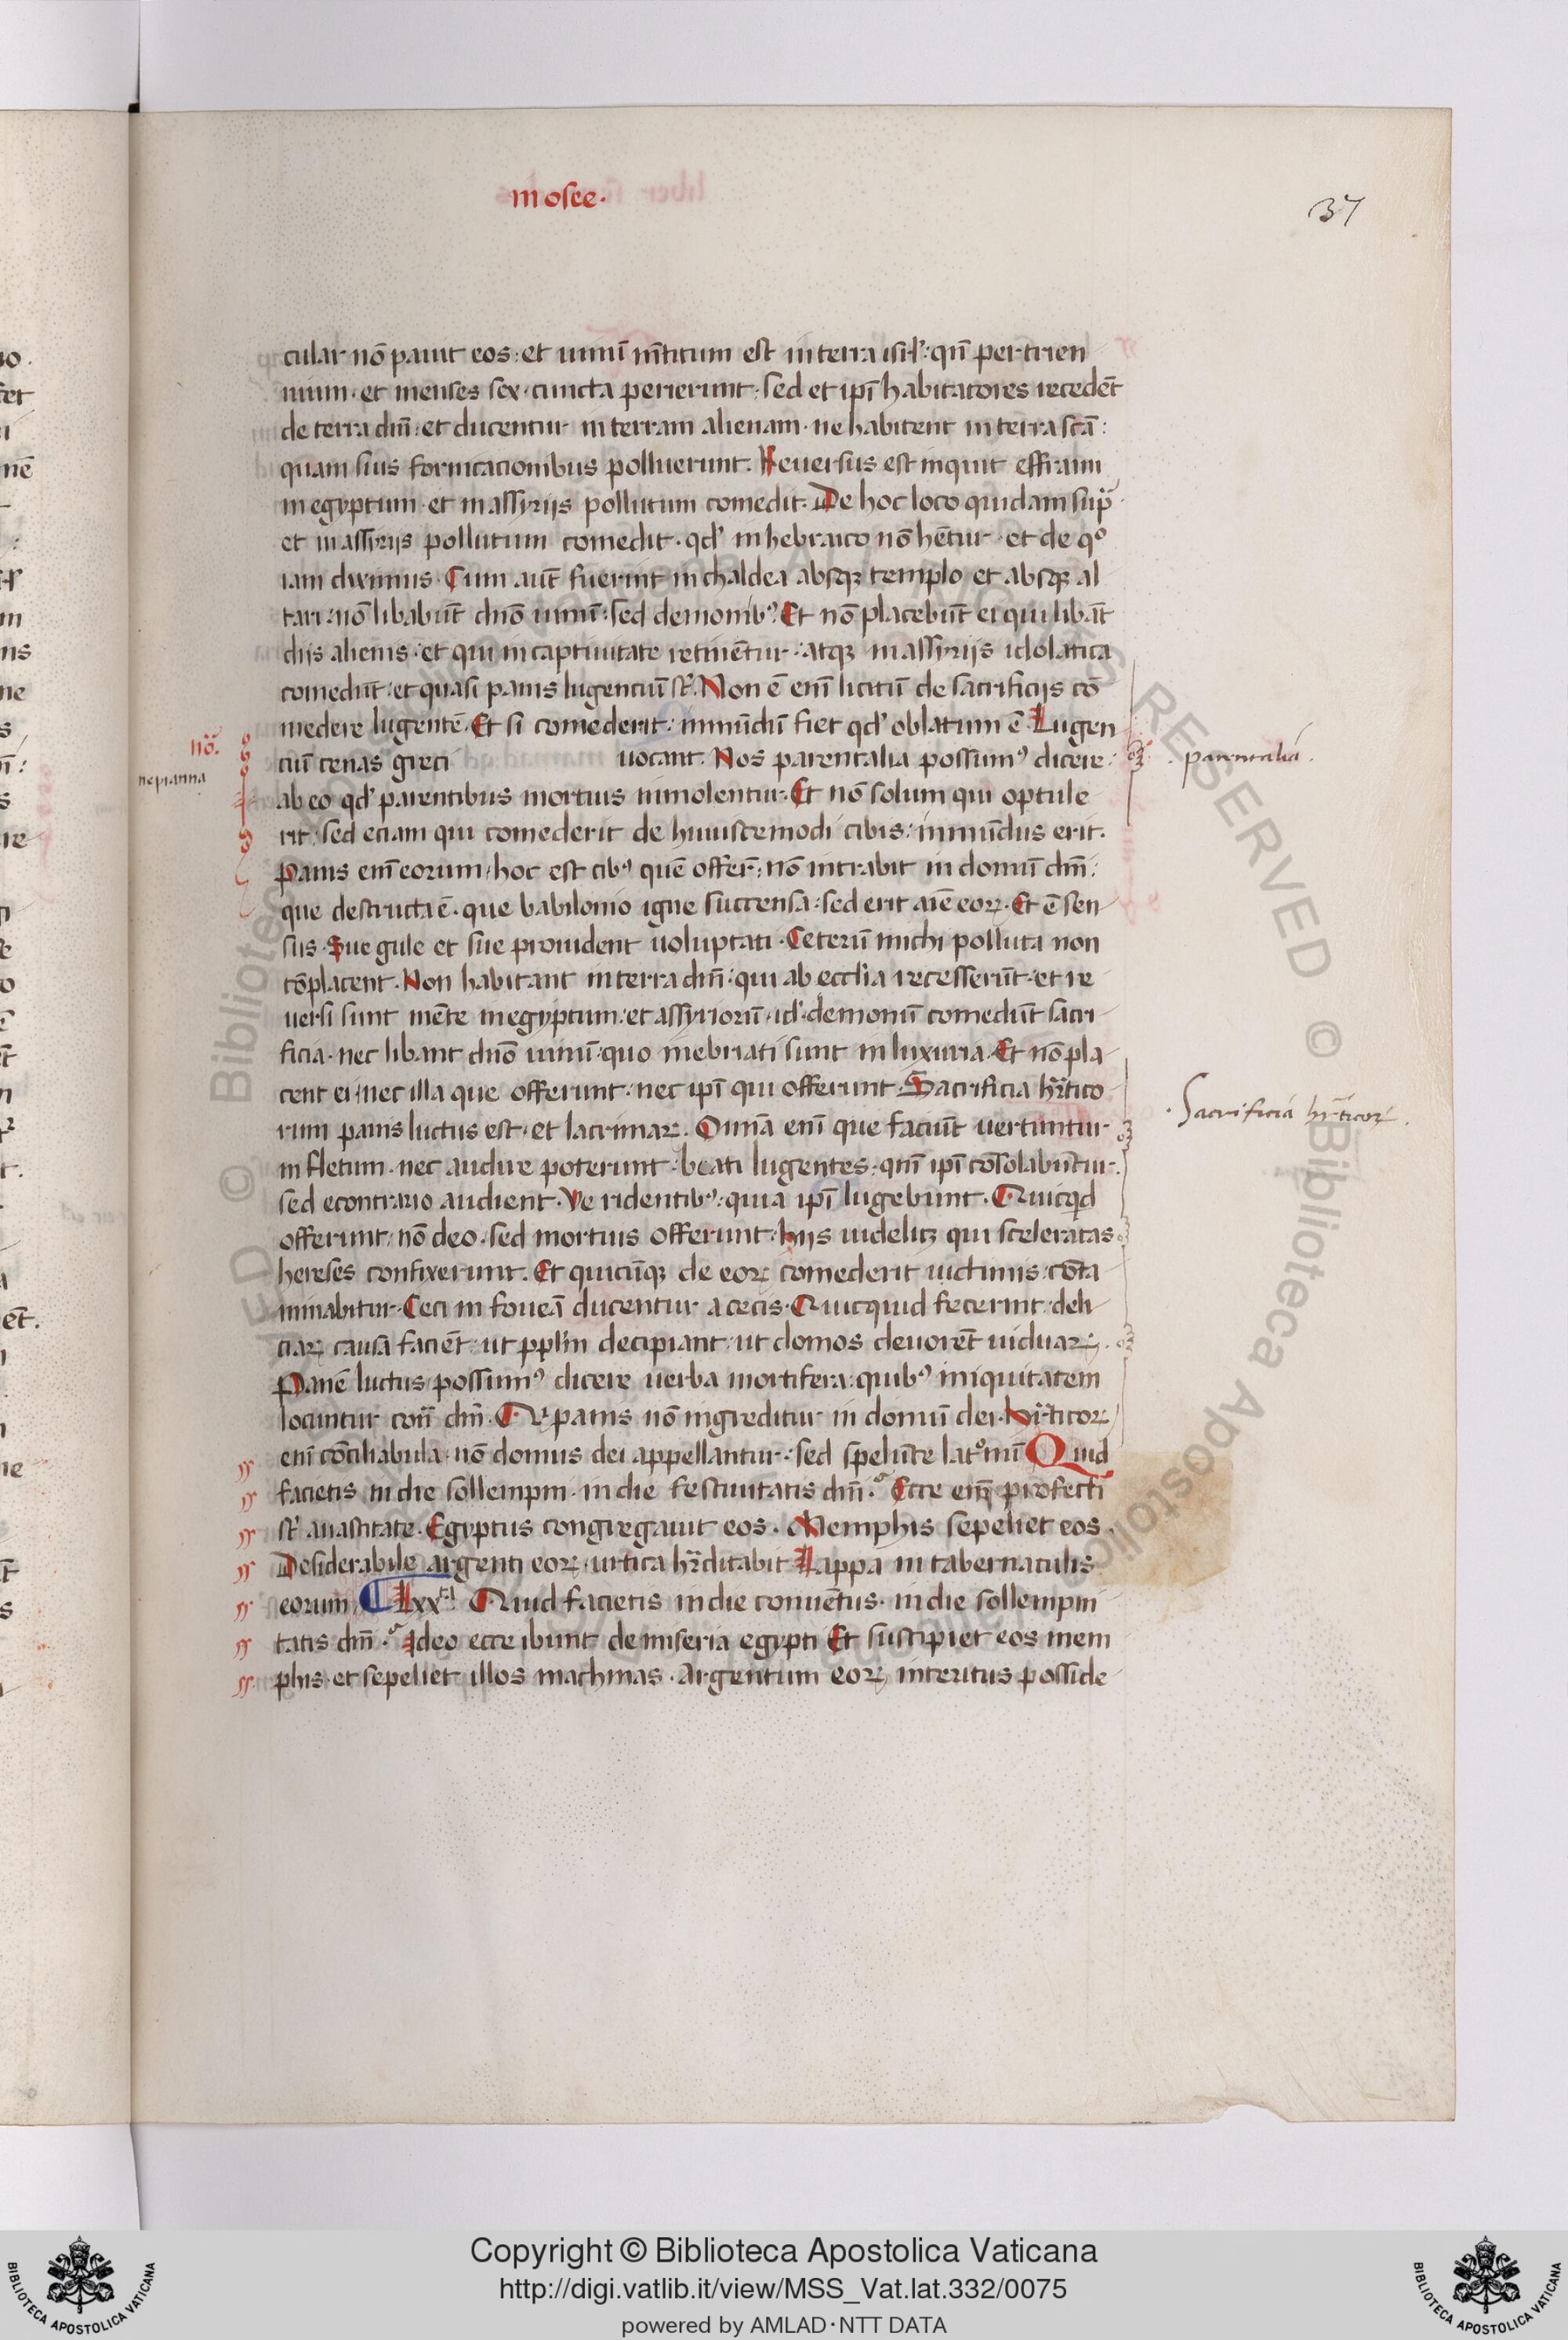 in osee.
37
cular nō pauit eos: et uinū m̄titum est in terra isrl': qn̄ per trien
nium. et menses sex. cuncta perierunt: sed et ipī habitatores recedēt
de terra dn̄i: et ducentur in terram alienam. ne habitent in terra scā:
quam suis fornicacionibus polluerunt. Reuersus est inquit effraim
in egyptum. et in assyrijs pollutum comedit. De hoc loco quidam sup̄
et in assirijs pollutum comedit. qd' in hebraico nō hētur. et de qº
iam diximus. Cum aūt fuerint in chaldea absqꝫ templo et absqꝫ al
tari: nō libabūt dn̄o uinū: sed demonibꝰ. Et nō placebūt ei qui libāt
diis alienis. et qui in captiuitate retinētur: atqꝫ in assyrijs idolatica
comedūt: et quasi panis lugenciū sť. Non ē enī licitū de sacrificijs cō
medere lugentē. Et si comederit: inmūdū fiet qd' oblatum ē. Lugen
ciū cenas greci uocant. Nos parentalia possumꝰ dicere:
nō.
nepianna
parentalia.
ab eo qd' parentibus mortuis immolentur. Et nō solum qui optule
rit: sed eciam qui comederit de huiuscemodi cibis: inmūdus erit.
Panis enī eorum, hoc est cibꝰ quē offer̄t: nō intrabit in domū dn̄i:
que destructa ē. que babilonio igne succensa: sed erit aīe eoꝝ. Et ē sen
sus. Sue gule et sue prouident uoluptati. Ceterū michi polluta non
cōplacent. Non habitant in terra dn̄i: qui ab ecclīa recesserūt. et re
uersi sunt mēte in egyptum: et assyriorū. id' demonū comedūt sacri
ficia. nec libant dn̄o uinū: quo inebriati sunt in luxuria. Et nō pla
cent ei: nec illa que offerunt. nec ipī qui offerunt. Sacrificia hr̄tico
Sacrificia hr̄ticoꝝ.
rum panis luctus est. et lacrimaꝝ. Omīa enī que faciūt uertuntur
in fletum. nec audire poterunt: beati lugentes. qm̄ ipī cōsolabūtur.
sed econtrario audient. Ve ridentibꝰ: quia ipī lugebunt. Quicqd
offerunt: nō deo. sed mortuis offerunt. hijs uidelicꝫ qui sceleratas
hereses confixerunt. Et quicūqꝫ de eoꝝ comederit uictimis: cōta
minabitur. Ceci in foueā ducentur a cecis. Quicquid fecerint: deli
ciaꝝ causa faciēt: ut ppl'm decipiant: ut domos deuorēt uiduaꝝ.
Panē luctus possumꝰ dicere uerba mortifera: quibꝰ iniquitatem
locuntur cont̄ dn̄i. Qi panis nō ingreditur in domū dei. Hr̄ticoꝝ
enī cōciliabula. nō domus dei appellantur: sed spelūce latºnū Quid
facietis in die sollempni. in die festiuitatis dn̄i. Ecce enī profecti
sť a uastitate. Egyptus congregauit eos. Memphis sepeliet eos.
Desiderabile argenti eoꝝ. urtica hr̄ditabit Lappa in tabernaculis
eorum, Lxx. Quid facietis in die conuētus. in die sollempni
tatis dn̄i. Ideo ecce ibunt de miseria egypti Et suscipiet eos mem
phis. et sepeliet illos machmas. Argentum eoꝝ interitus posside
Copyright © Biblioteca Apostolica Vaticana
http://digi.vatlib.it/view/MSS_Vat.lat.332/0075
powered by AMLAD·NTT DATA